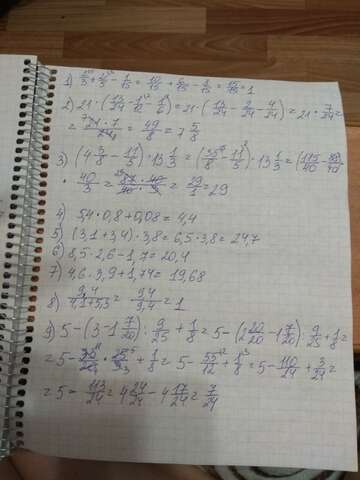 1) 2/3 + 2/5 - 1/15 = 10/15 + 6/15 - 1/15 = 15/15 = 1
2) 21 · (13/24 - 1/12 - 1/6) = 21 · (13/24 - 2/24 - 4/24) = 21 · 7/24 =
= 21 · 7 / 24 = 49/8 = 7 5/8
3) (4 3/8 - 11/5) · 13 1/3 = (35/8 - 11/5) · 13 1/3 = (175/40 - 88/40) ·
· 40/3 = 87 · 40 / 40 · 3 = 29/1 = 29
4) 54 · 0,8 + 0,08 = 4,4
5) (3,1 + 3,4) · 3,8 = 6,5 · 3,8 = 24,7
6) 8,5 · 2,6 - 1,7 = 20,4
7) 4,6 · 3,9 + 1,74 = 19,68
8) 9,4 / 4,1 + 5,3 = 9,4 / 9,4 = 1
9) 5 - (3 - 1 7/20) : 9/25 + 1/8 = 5 - (2 20/20 - 1 7/20) : 9/25 + 1/8 =
= 5 - 33/20 · 25/9 + 1/8 = 5 - 55/12 + 1/8 = 5 - 110/24 + 3/24 =
= 5 - 113/24 = 4 24/24 - 4 17/24 = 7/24